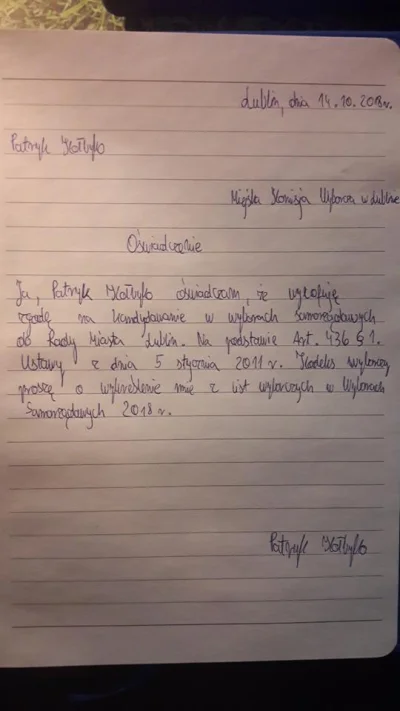 Lublin, dnia 14.10.2018r.
Patryk Kołbyko
Miejska Komisja Wyborcza w Lublinie
Oświadczenie
Ja, Patryk Kołbyko oświadczam, że wycofuję
zgodę na kandydowanie w wyborach samorządowych
do Rady Miasta Lublin. Na podstawie Art. 436 § 1.
Ustawy z dnia 5 stycznia 2011 r. Kodeks wyborczy
proszę o wykreślenie mnie z list wyborczych w Wyborach
Samorządowych 2018 r.
Patryk Kołbyko